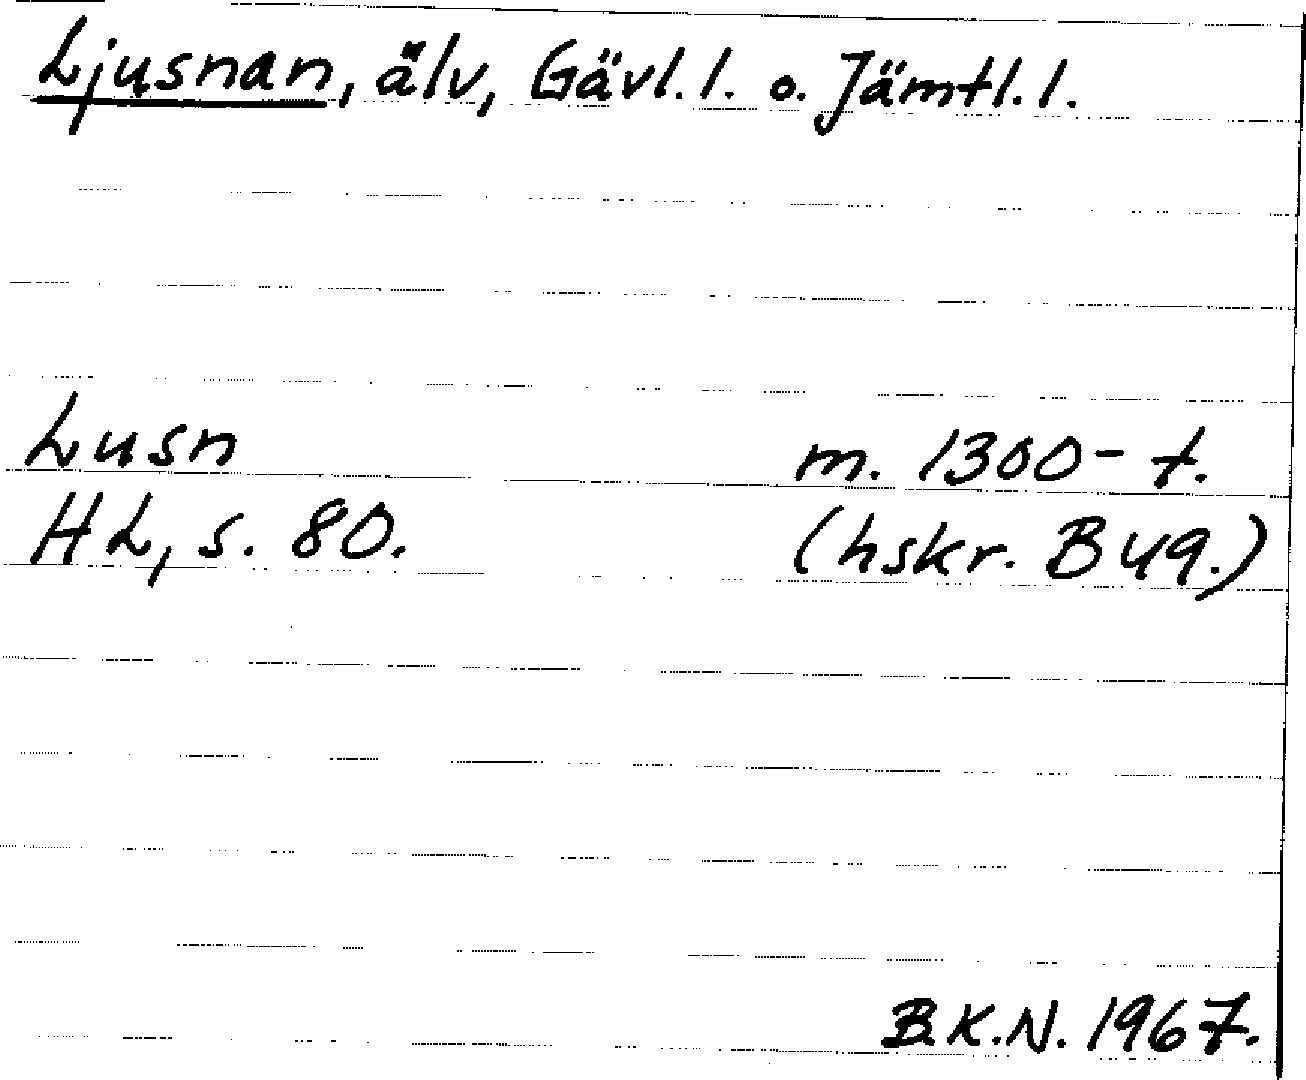 Ljusnan, älv, Gävl. l. o. Jämtl. l.
Lusn m. 1300-t.
HL, s. 80. (hskr. B 49.)
B.K.N. 1967.